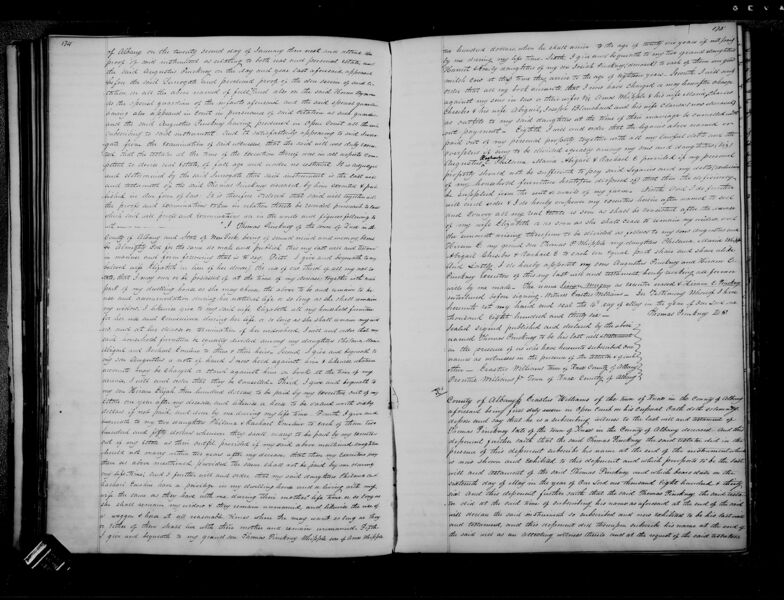 174
of Albany on the twenty second day of January then next and attend the
proof of said instrument as relating to both real and personal estate and
the said Augustus Pinckney on the day and year last aforesaid appeared
before the said Surrogate and produced proof of the due service of said ci-
tation on all the above named of full age and also on the said Horace
the special guardian of the infants aforesaid and the said special guard-
having also appeared in court in pursuance of said citation as such guardian
and the said Augustus Pinckney having produced in Open Court all the
subscribing to said instrument and it satisfactorily appearing to said Surro-
gate from the examination of said witnesses, that the said will was duly execu-
ted, that the testator at the time of the execution thereof was in all respects compe-
tent to devise real estate, of full age and under no restraint. It is adjudged
and determined by the said Surrogate that said instrument is the last will
and testament of the said Thomas Pinckney deceased by him executed & pub-
lished in due form of law. It is therefore ordered that said will together with
the proofs and examinations taken in relation thereto be recorded pursuant to law
which said will proofs and examinations are in the words and figures following to
wit I Thomas Pinckney of the town of in the
County of Albany and State of New York being of sound mind and memory
to Almighty God for the same do make and publish this my last will and testament
in manner and form following that is to say. First. I give and bequeath to my
beloved wife Elizabeth in lieu of her dower, the use of one third of all my real es-
tate that I may own or be possessed of at the time of my decease, together with such
part of my dwelling house as she may choose the above to be and remain to her
use and accommodation during her natural life or so long as she shall remain
my widow. I likewise give to my said wife Elizabeth all my household furniture
for her use and convenience during her life or so long as she shall remain my wid-
ow, and at her decease or termination of her widowhood I will and order that
said household furniture be equally divided among my daughters Philena Maria
Abigail and Rachael Emeline to them & their heirs. Second I give and bequeath to
my son Augustus a note of hand I now hold against him & likewise whatever
accounts may be charged or stand against him on book at the time of my
decease, I will and order that they be cancelled. Third. I give and bequeath to
my son Hiram Elijah three hundred dollars to be paid by my executors out of my
estate one year after my decease, and likewise a horse to be valued with sixty
dollars if not paid and given by me during my life time. Fourth. I give and
bequeath to my two daughters Philena & Rachael Emeline to each of them two
hundred and fifty dollars whenever they shall marry to be paid by my executors
out of my estate as their outfit, provided if my said above mentioned daughters
should not marry within two years after my decease, that then my executors pay
them as above mentioned, provided the same shall not be paid by me during
my life time, And I further will and order that my said daughters Philena and
Rachael Emeline have a privilege in my dwelling house and a living with my
wife the same as they had with me during their mother life time, or so long as
she shall remain my widow & they remain unmarried, and likewise the use of
a waggon & horse at all reasonable times when they may want so long as they
or either of them shall live with their mother and remain unmarried. Fifth.
I give and bequeath to my grand son Thomas Pinckney Whipple son of Amos Whipple
175
two hundred dollars when he shall arrive to the age of twenty one years if not paid
by me during my life time. Sixth. I give and bequeath to my two grand daughters
Harriet & Emily daughters of my son Josiah Pinckney deceased to each of them one good
milch cow at the time they arrive to the age of eighteen years. Seventh. I will and
order that all my book accounts that I now have charged or may hereafter charge
against my sons in law or their wives viz Amos Whipple & his wife Clarissa
Chesebro & his wife Abigail, Joseph Blanchard and his wife
as outfits to my said daughters at the time of their marriage be cancelled with-
out payment. Eighth. I will and order that the legacies above named be
paid out of my personal property together with all my lawful debts and the
overplus if any to be divided equally among my sons and daughters (viz)
Augustus Hiram E Philena Maria Abigail & Rachael E. provided if my personal
property should not be sufficient to pay said legacies and my debts exclusive
of my household furniture heretofore disposed of, that then the deficiency
be supplied from the rent or avails of my farm. Ninth. And I do further
will and order & I do hereby empower my executors herein after named to sell
and convey all my real estate as soon as shall be consistent after the decease
of my wife Elizabeth or as soon as she shall cease to remain my widow and
the amount arising therefrom to be divided as follows to my sons Augustus and
Hiram E. my grand son Thomas P. Whipple my daughters Philena, Maria Whipple
Abigail Chesebro & Rachael E. to each an equal part share and share alike
And Lastly, I do hereby appoint my sons Augustus Pinckney and Hiram E.
Pinckney Executors of this my last will and testament hereby revoking all former
wills by me made. The name Hiram Pinckney as executor erased & Hiram E. Pinckney
interlined before signing. Witness Erastus Williams - In Testimony Whereof I have
hereunto set my hand and seal the 16 day of May in the year of our Lord one
thousand eight hundred and thirty six Thomas Pinckney L.S.
Sealed signed published and declared by the above
named Thomas Pinckney to be his last will & testament
in the presence of us who have hereunto subscribed our
names as witnesses in the presence of the testator & each
other - Erastus Williams Town of County of Albany
Prentice Williams Jr. Town of County of Albany
County of Albany ss Erastus Williams of the town of in the County of Albany
aforesaid being first duly sworn in Open Court on his Corporal Oath doth
depose and say that he is a subscribing witness to the last will and testament of
Thomas Pinckney late of the town of in the County of Albany deceased. And this
deponent further saith that the said Thomas Pinckney the said testator did in the
presence of this deponent subscribe his name at the end of the instrument which
is now shown and exhibited to this deponent and which purports to be the last
will and testament of the said Thomas Pinckney and which bears date on the
sixteenth day of May in the year of Our Lord one thousand eight hundred & thirty
six. And this deponent further saith that the said Thomas Pinckney the said testa-
tor did at the said time of subscribing his name as aforesaid at the end of the said
will declare the said instrument so subscribed and now exhibited to be his last will
and testament, and this deponent did thereupon subscribe his name at the end of
the said will as an attesting witness thereto and at the request of the said testator